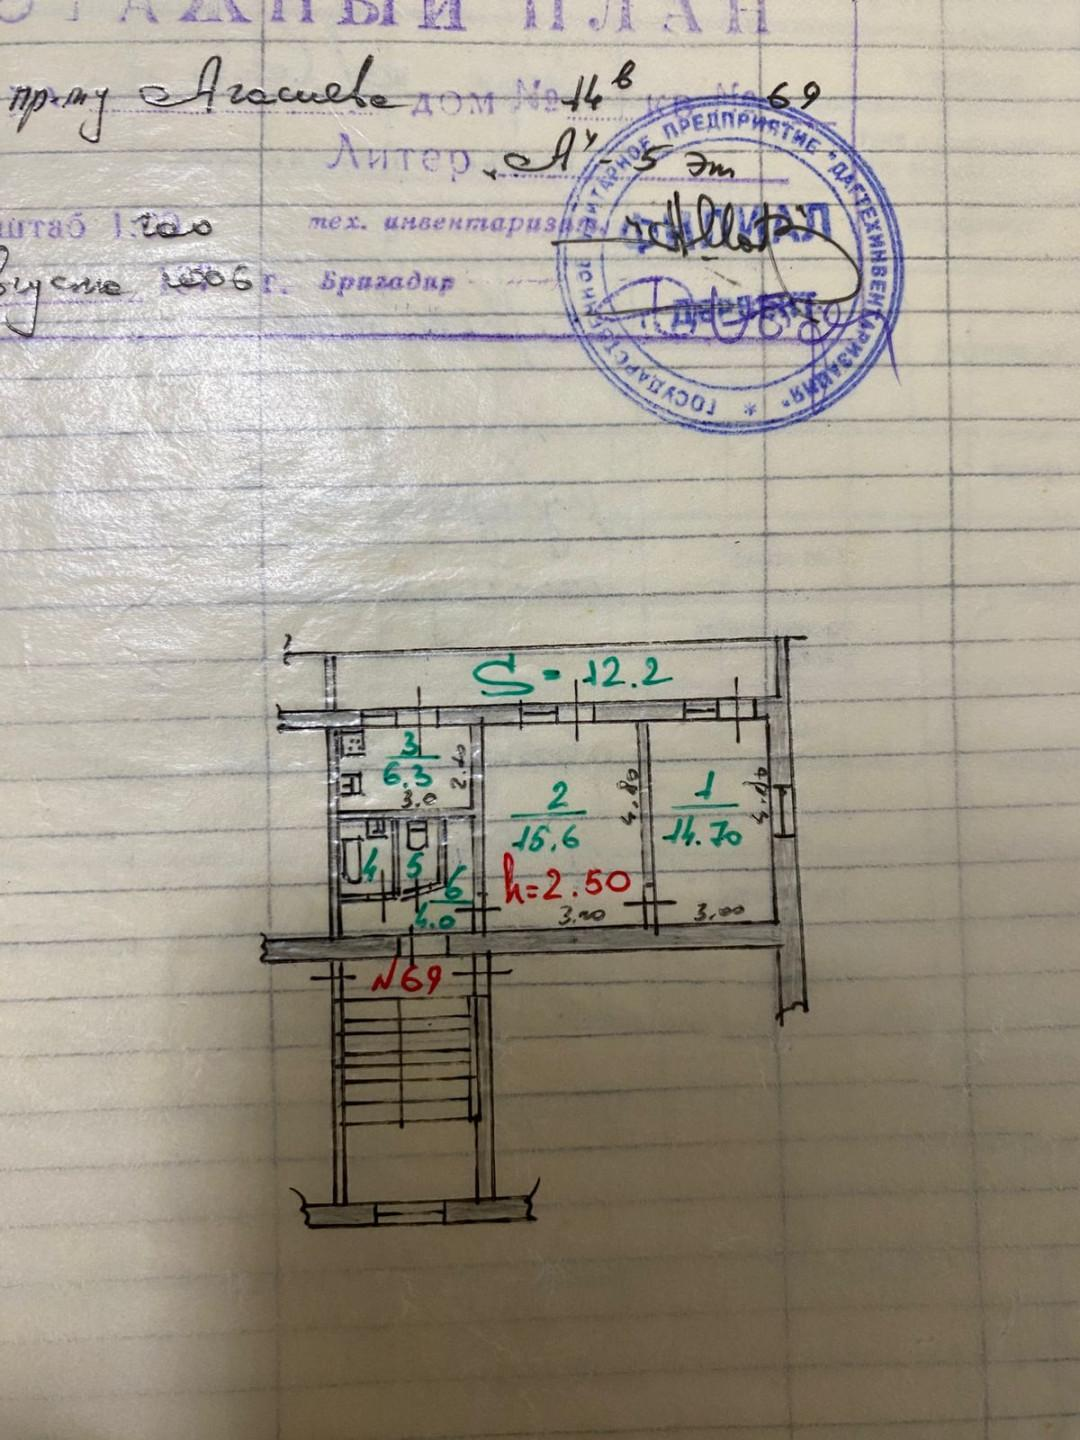 ЭТАЖНЫЙ ПЛАН
пр-ту Агасиева дом № 14в кв № 69
Литер „А" - 5 эт
штаб 1: 100 тех. инвентаризац.
августа 2006 г. Бригадир
ГОСУДАРСТВЕННОЕ УНИТАРНОЕ ПРЕДПРИЯТИЕ "ДАГТЕХИНВЕНТАРИЗАЦИЯ" *
ФИЛИАЛ
S = 12.2
3
6.3
2.10
3.0
2
15.6
4.80
1
14.70
4.90
4
5
6
4.0
h=2.50
3.20
3.00
N69